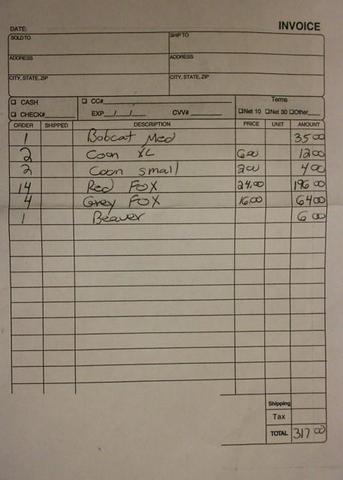 INVOICE
DATE:
SOLD TO SHIP TO
ADDRESS ADDRESS
CITY, STATE, ZIP CITY, STATE, ZIP
CASH CC# Terms
CHECK# EXP / / CVV# Net 10 Net 30 Other
ORDER SHIPPED DESCRIPTION PRICE UNIT AMOUNT
1 Bobcat Med 35 00
2 Coon XL 6.00 12 00
2 Coon small 2 00 4 00
14 Red FOX 24.00 196 00
4 Grey FOX 16.00 64 00
1 Beaver 6 00
Shipping
Tax
TOTAL 317 00